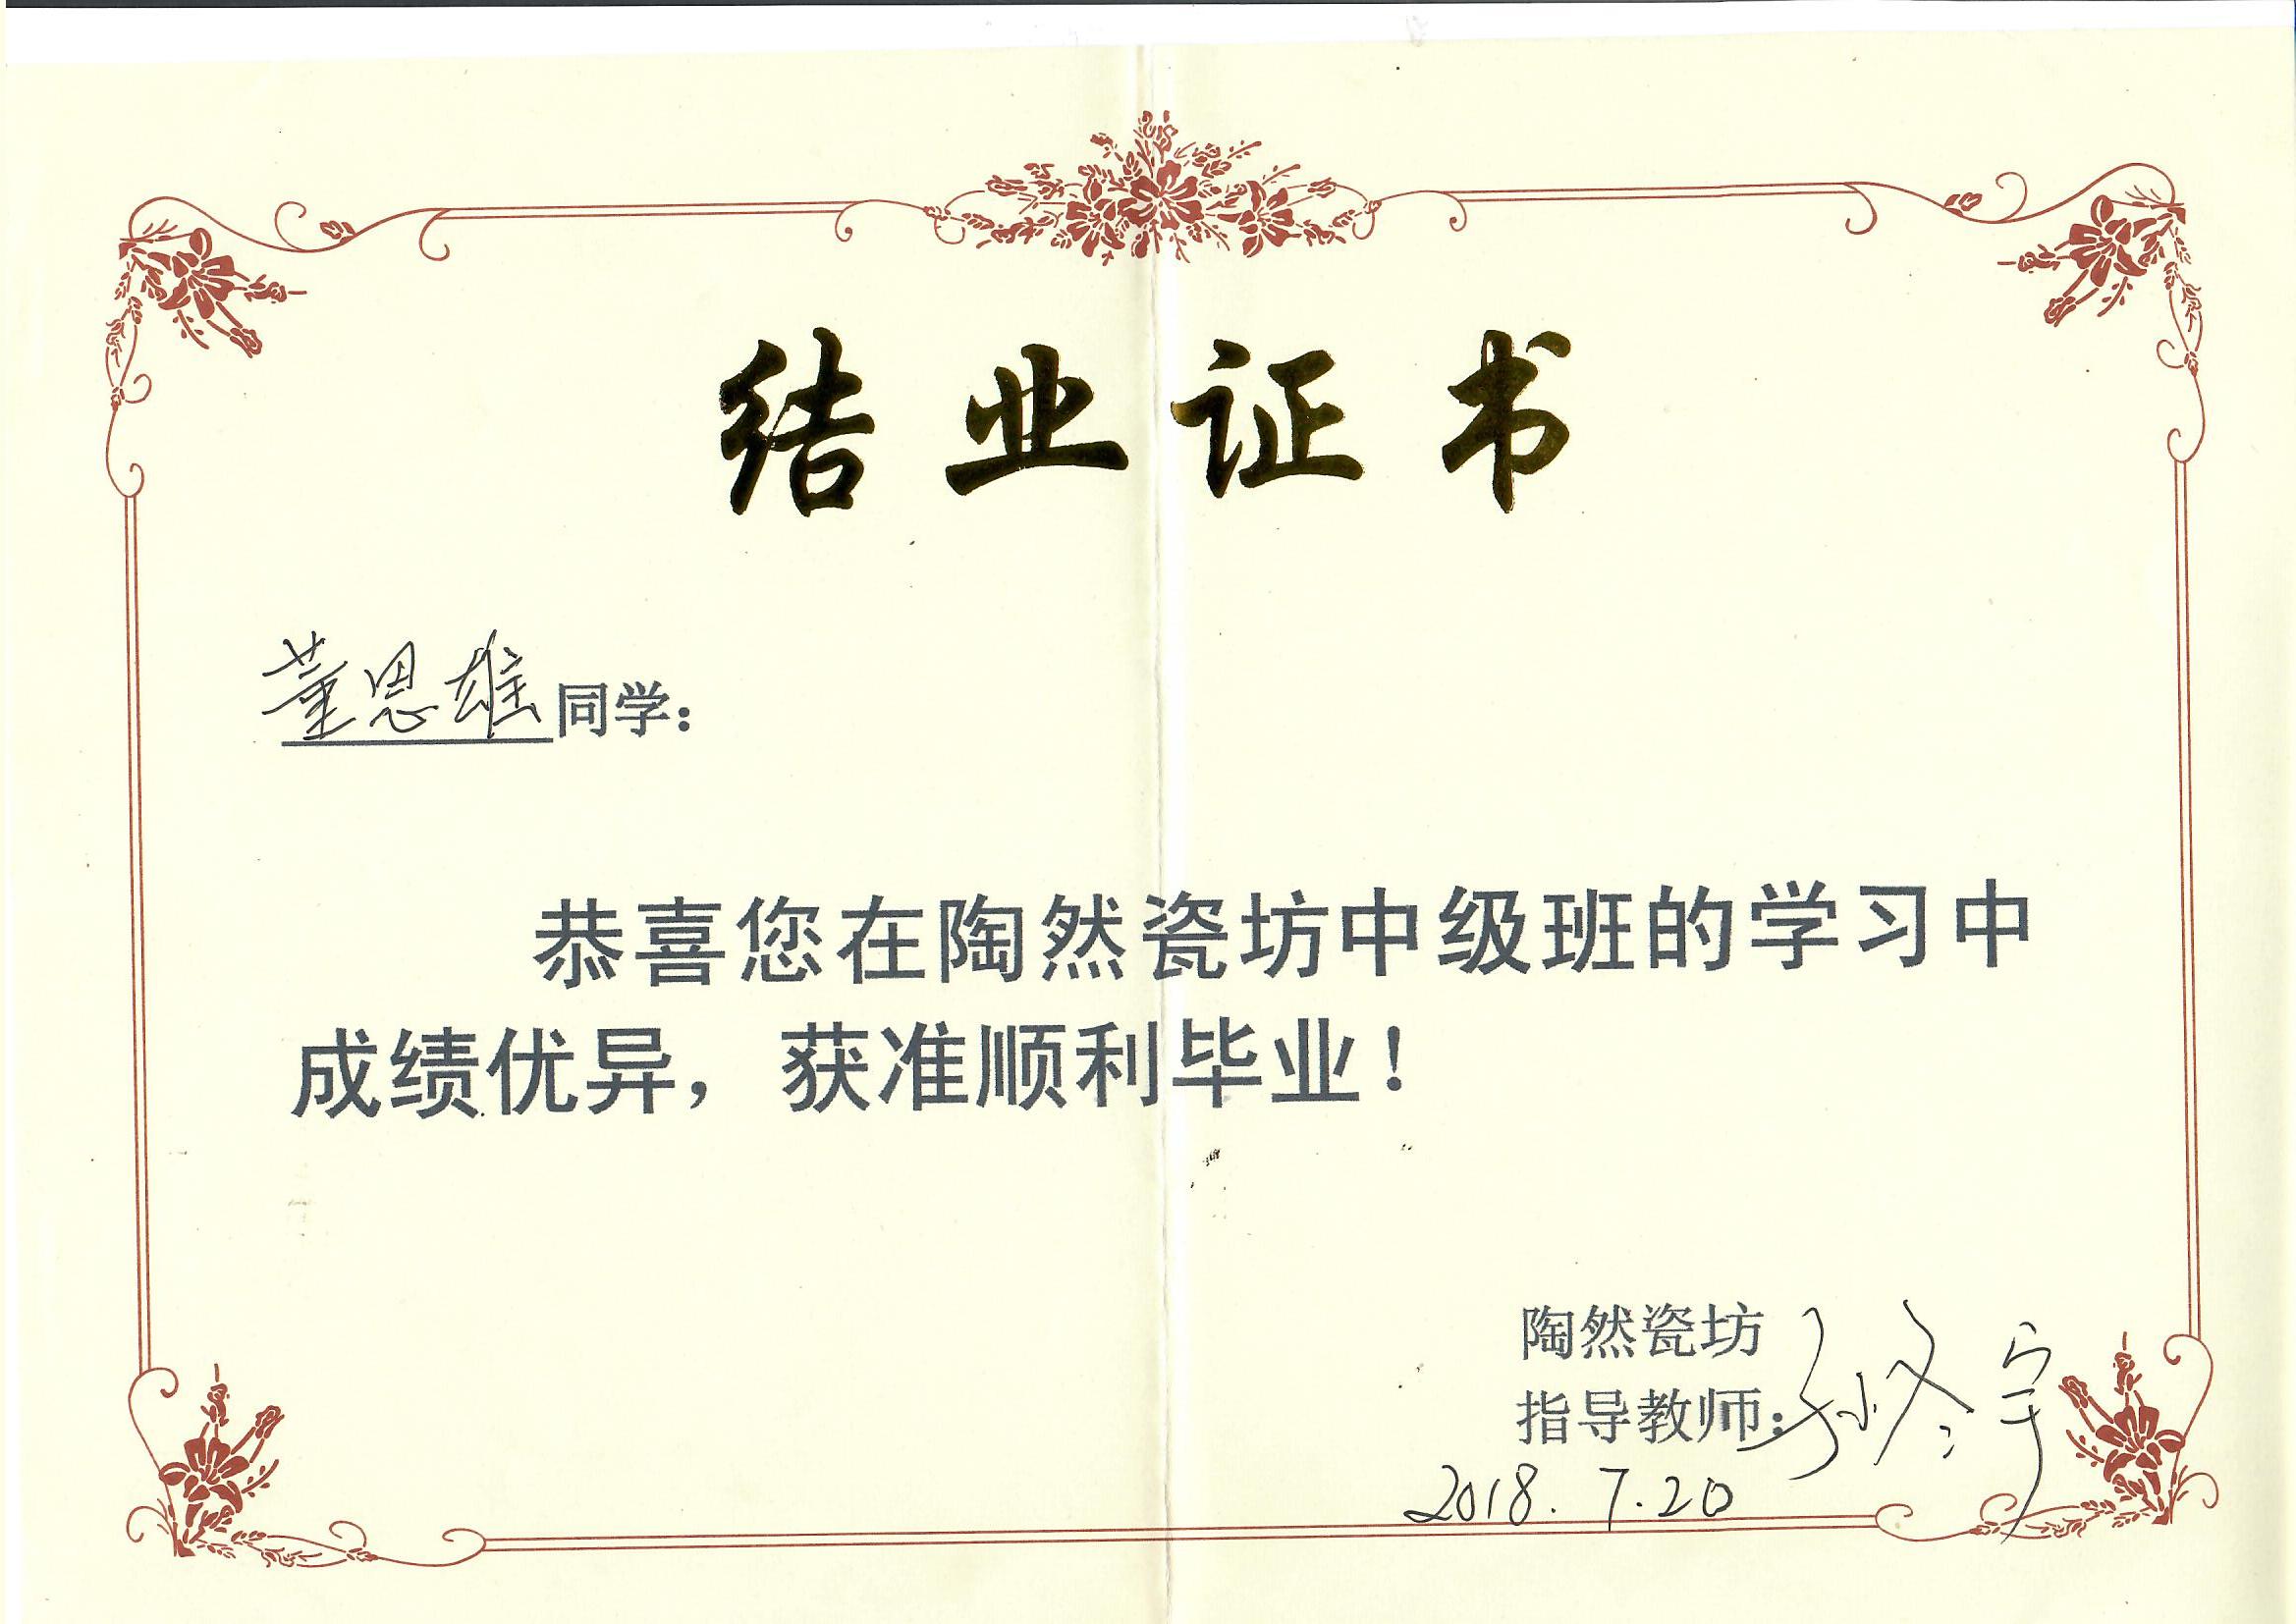 结业证书
董恩雄同学：
恭喜您在陶然瓷坊中级班的学习中
成绩优异，获准顺利毕业！
陶然瓷坊
指导教师：孙冬宇
2018.7.20